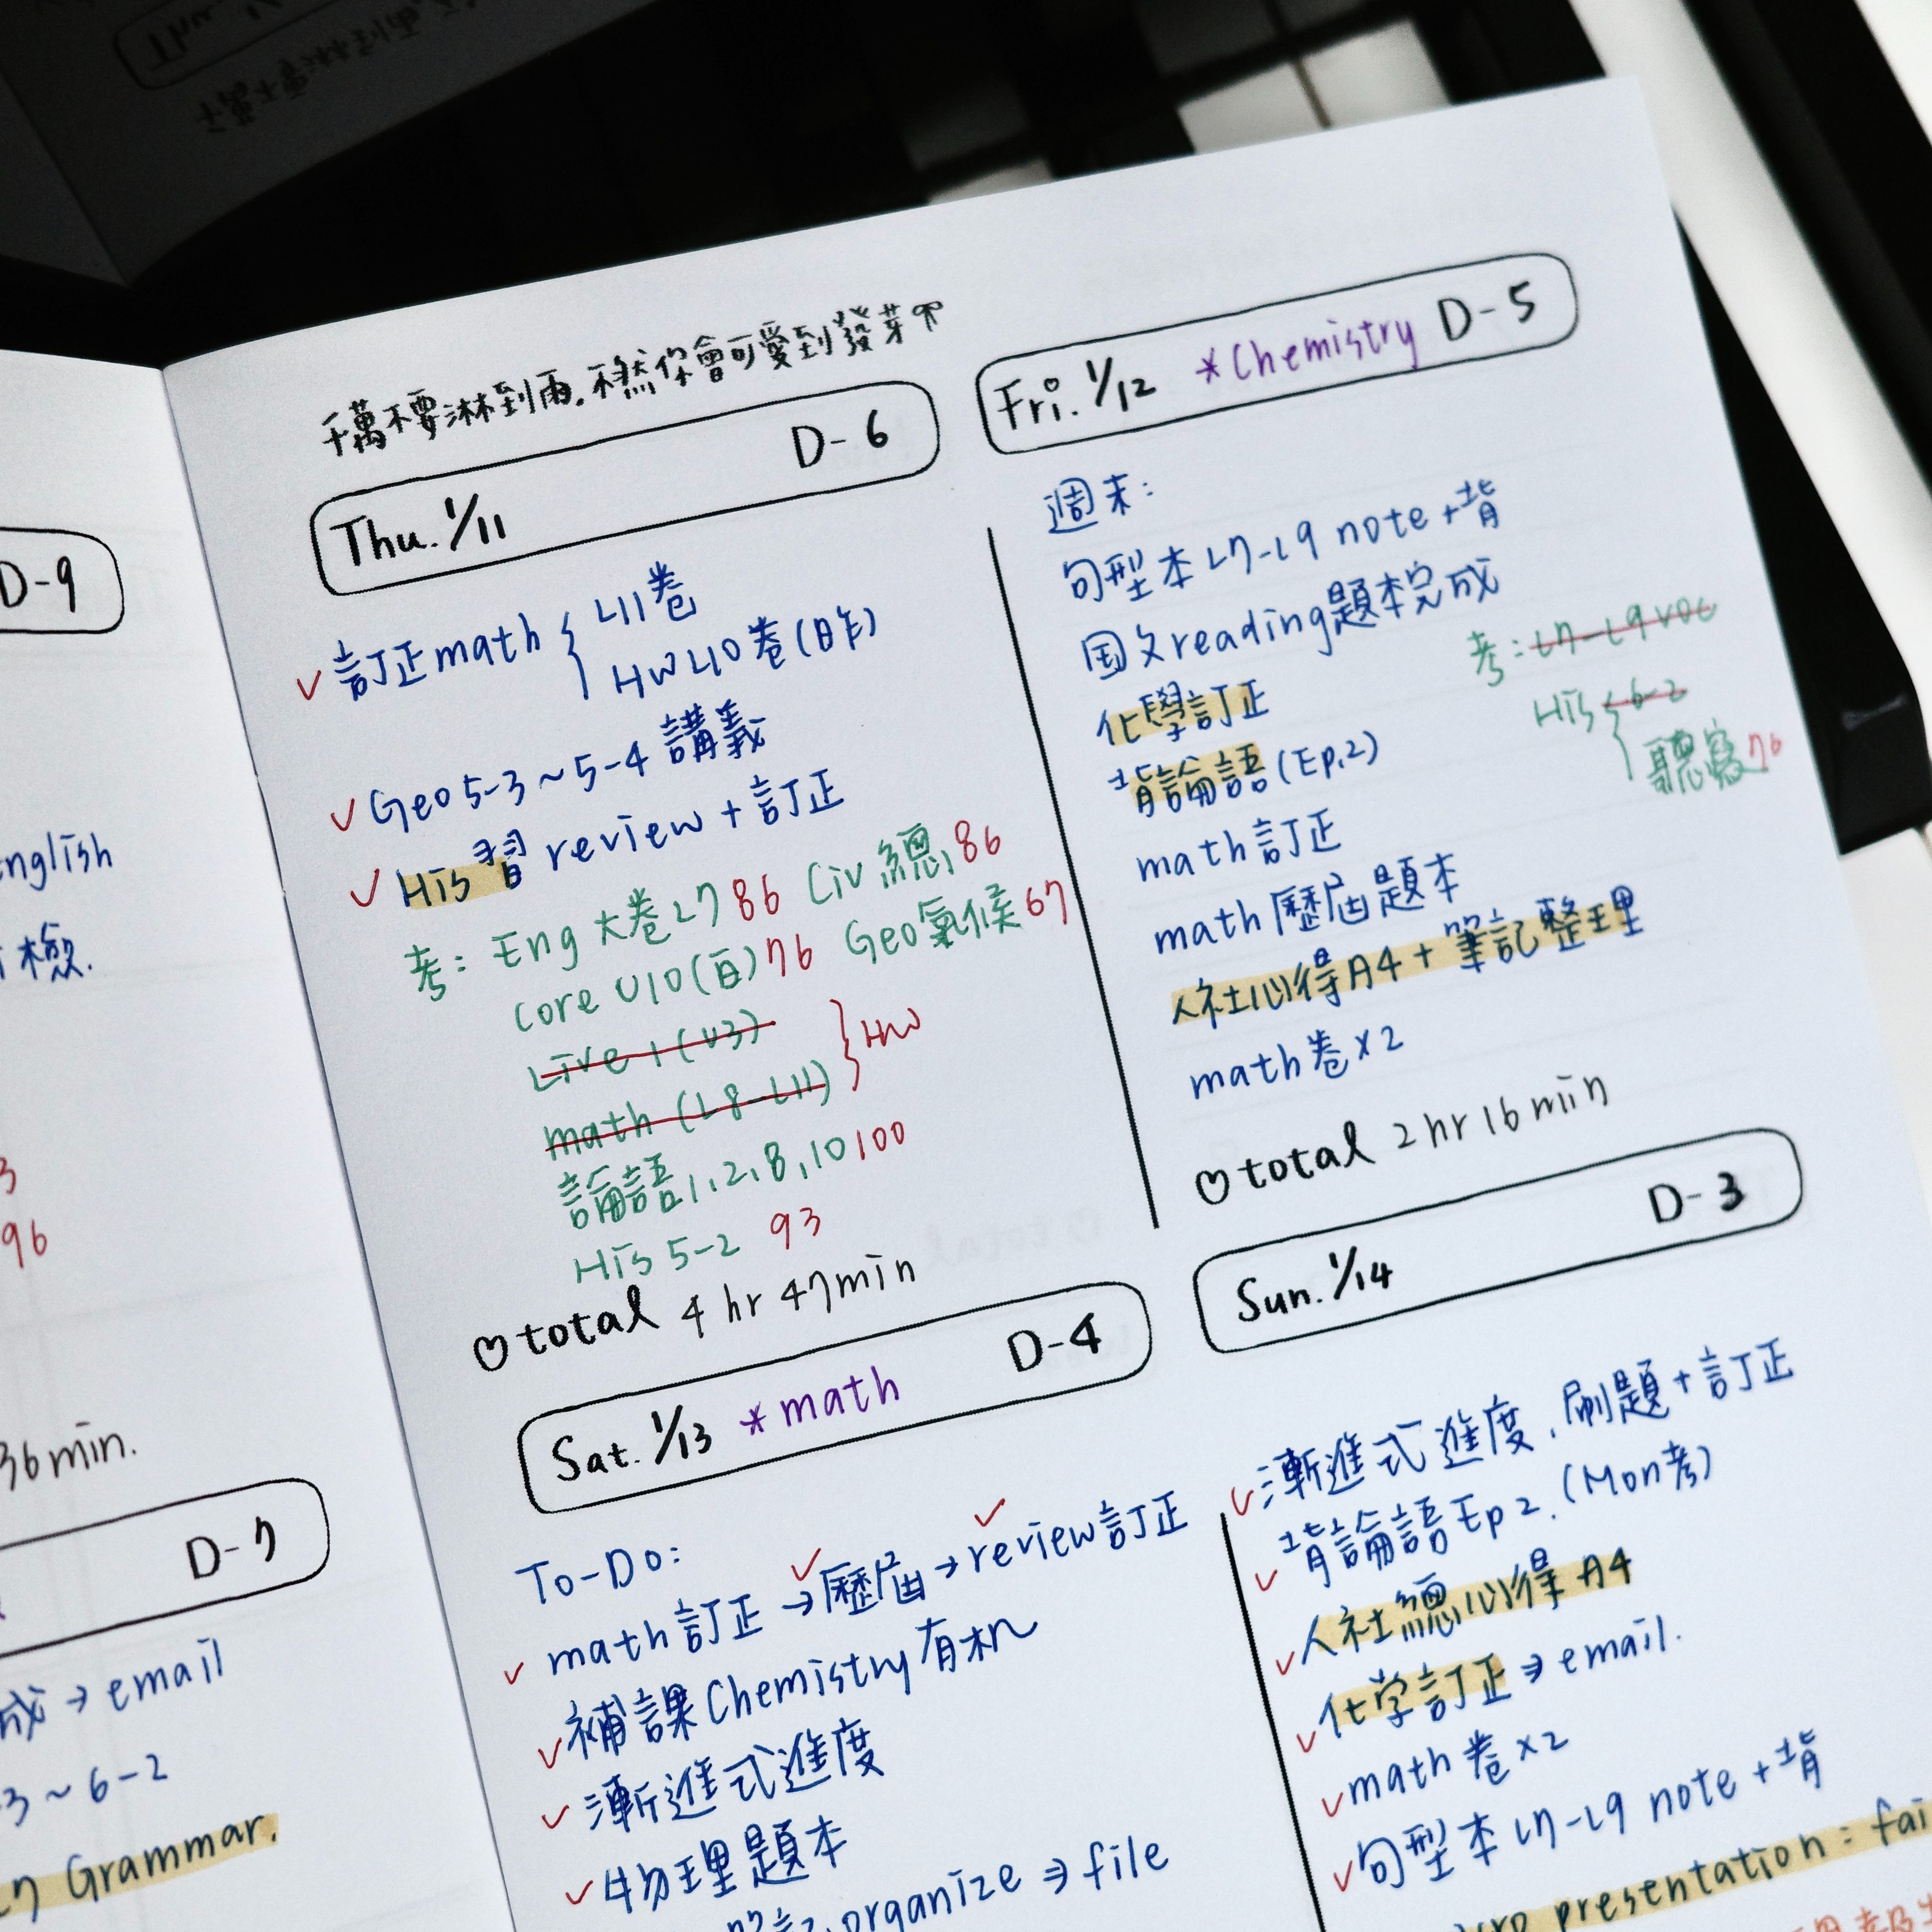 D-9
English
檢.
3
96
36 min.
D-7
成 → email
3 ~ 6-2
Grammar.
千萬不要淋到雨,不然你會可愛到發芽
Thu. 1/11 D-6
✓ 訂正math { L11卷
HW L10卷(昨)
✓ Geo 5-3 ~ 5-4 講義
✓ His 習 review + 訂正
考: Eng 大卷L7 86 Civ 總 86
Core U10(百) 76 Geo氣候 67
Live 1 (U3) } HW
math (L8-L11)
論語1,2,8,10 100
His 5-2 93
♡ total 4 hr 47min
Fri. 1/12 *Chemistry D-5
週末:
句型本L7-L9 note+背
国文reading題本完成
考: L7-L9 voc
His { 6-2
聽寫 76
化學訂正
背論語(Ep.2)
math 訂正
math 歷屆題本
人社心得A4 + 筆記整理
math卷x2
♡ total 2 hr 16 min
Sat. 1/13 *math D-4
To-Do:
✓ math 訂正 → ✓歷屆 → ✓review訂正
✓ 補課 Chemistry 有机
✓ 漸進式進度
✓ 物理題本
organize ⇒ file
Sun. 1/14 D-3
✓ 漸進式進度,刷題+訂正
✓ 背論語 Ep 2. (Mon考)
✓ 人社總心得 A4
✓ 化学訂正 ⇒ email.
✓ math 卷 x2
✓ 句型本 L7-L9 note + 背
presentation: